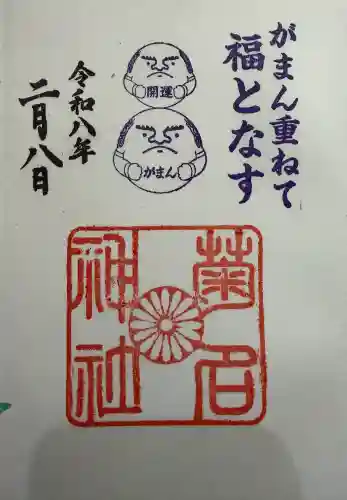 がまん重ねて
福となす
開運
がまん
令和八年
二月八日
菊名
神社